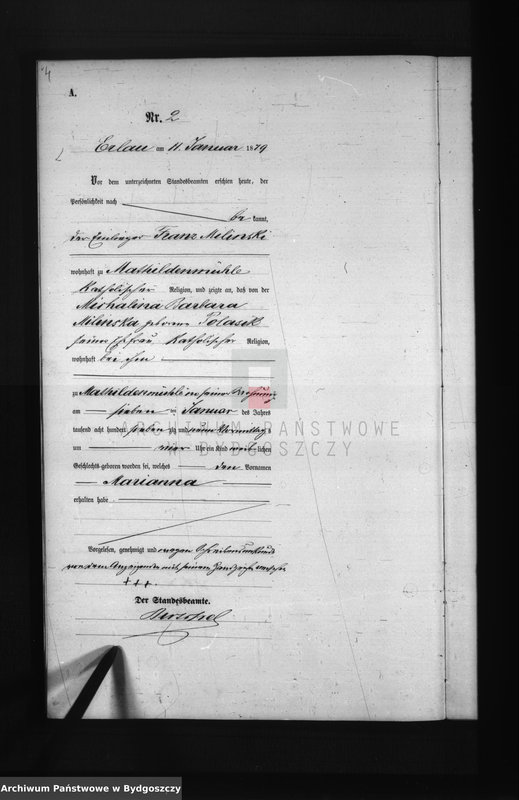 4
A.
Nr. 2
Erlau am 11. Januar 1879
Vor dem unterzeichneten Standesbeamten erschien heute, der
Persönlichkeit nach
be kannt,
der Einlieger Franz Milinski
wohnhaft zu Mathildenmühle
katholischer Religion, und zeigte an, daß von der
Michalina Barbara
Milinska geborne Polasik
seiner Ehefrau katholischer Religion,
wohnhaft bei ihm
zu Mathildenmühle in seiner Wohnung
am sieben ten Januar des Jahres
tausend acht hundert sieben zig und neun Vormittags
um vier Uhr ein Kind weib lichen
Geschlechts geboren worden sei, welches den Vornamen
Marianna
erhalten habe.
Vorgelesen, genehmigt und wegen Schreibensunkunde
von dem Anzeigenden mit seinem Handzeichen versehen
+++.
Der Standesbeamte.
ARCHIWUM PAŃSTWOWE
W BYDGOSZCZY
Archiwum Państwowe w Bydgoszczy